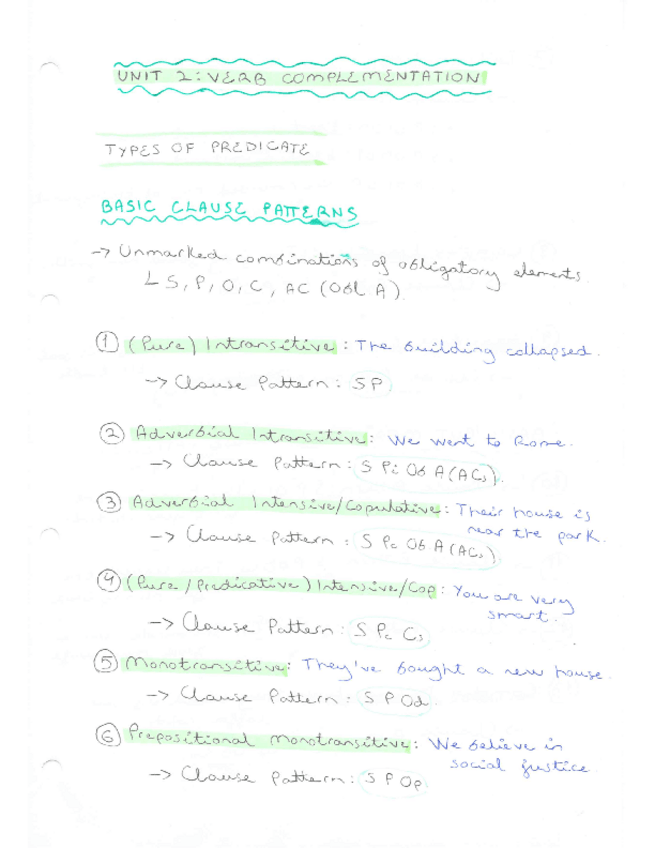 UNIT 2: VERB COMPLEMENTATION
TYPES OF PREDICATE
BASIC CLAUSE PATTERNS
→ Unmarked combinations of obligatory elements.
↳ S, P, O, C, AC (Obl A).
① (Pure) Intransitive: The building collapsed.
→ Clause Pattern: SP
② Adverbial Intransitive: We went to Rome.
→ Clause Pattern: S Pi Ob A (ACs).
③ Adverbial Intensive/Copulative: Their house is
near the park.
→ Clause Pattern: S Pc Ob A (ACs).
④ (Pure / Predicative) Intensive/Cop: You are very
smart.
→ Clause Pattern: S Pc Cs
⑤ Monotransitive: They've bought a new house.
→ Clause Pattern: S P Od.
⑥ Prepositional monotransitive: We believe in
social justice.
→ Clause Pattern: S P Op